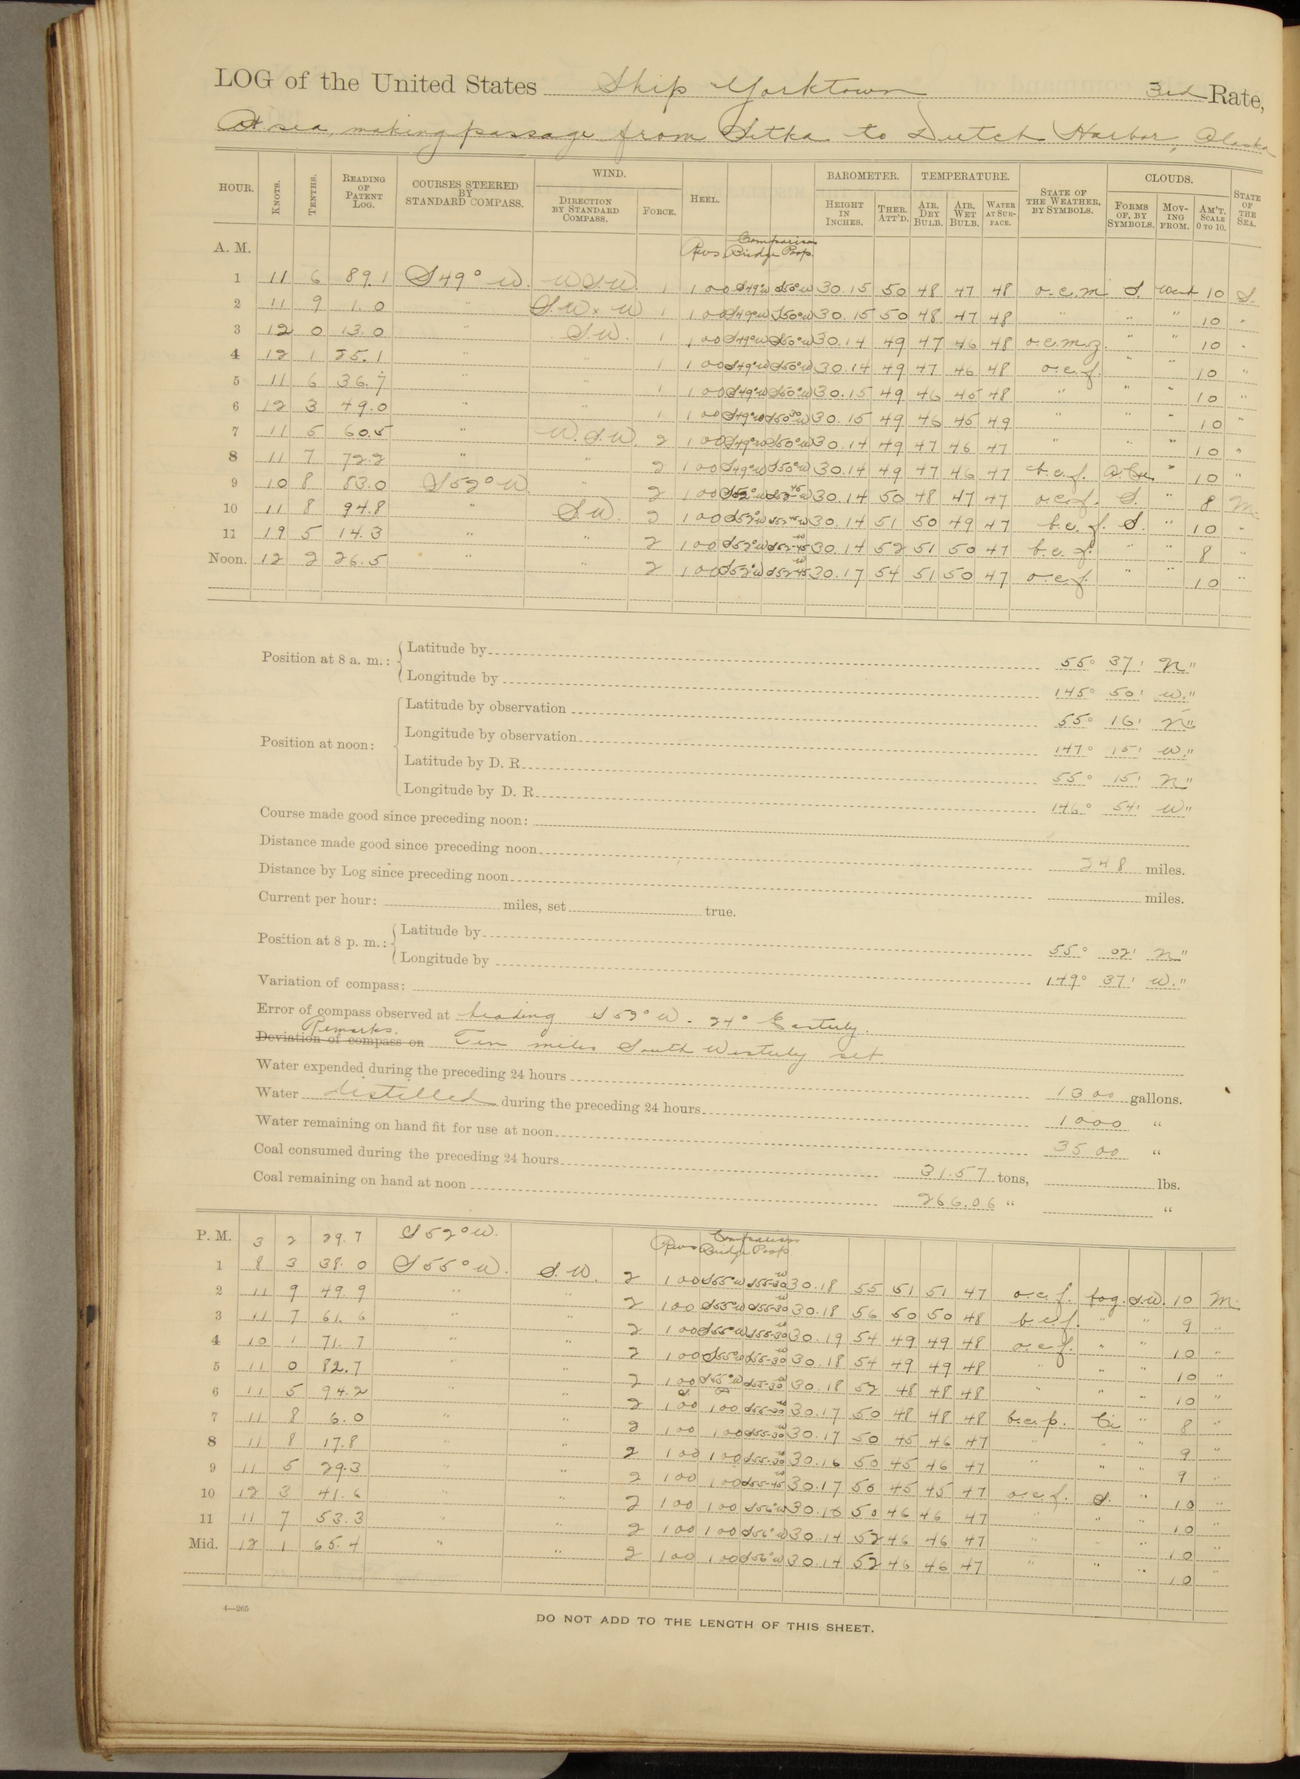 LOG of the United States Ship Yorktown 3rd Rate,
At sea, making passage from Sitka to Dutch Harbor, Alaska
HOUR. KNOTS. TENTHS. READING OF PATENT LOG. COURSES STEERED BY STANDARD COMPASS. WIND. DIRECTION BY STANDARD COMPASS. FORCE. HEEL. BAROMETER. HEIGHT IN INCHES. THER. ATT'D. TEMPERATURE. AIR, DRY BULB. AIR, WET BULB. WATER AT SURFACE. STATE OF THE WEATHER, BY SYMBOLS. CLOUDS. FORMS OF, BY SYMBOLS. MOVING FROM. AM'T. SCALE 0 TO 10. STATE OF THE SEA.
A. M. Revs Comparison Bridge Poop
1 11 6 89.1 S49°W. WSW. 1 100 S49°W S50°W 30.15 50 48 47 48 o.c.m S. West 10 S.
2 11 9 1.0 " S.W. x W 1 100 S49°W S50°W 30.15 50 48 47 48 " " " 10 "
3 12 0 13.0 " S.W. 1 100 S49°W S50°W 30.14 49 47 46 48 o.c.m.z. " " 10 "
4 12 1 25.1 " " 1 100 S49°W S50°W 30.14 49 47 46 48 o.c.f. " " 10 "
5 11 6 36.7 " " 1 100 S49°W S50°W 30.15 49 46 45 48 " " " 10 "
6 12 3 49.0 " " 1 100 S49°W 30.15 49 46 45 49 " " " 10 "
7 11 5 60.5 " W.S.W. 2 100 S49°W S50°W 30.14 49 47 46 47 " " " 10 "
8 11 7 72.2 " " 2 100 S49°W S50°W 30.14 49 47 46 47 b.c.f. " 10 "
9 10 8 83.0 S52°W " 2 100 S52°W 30.14 50 48 47 47 o.c.f. S. " 8 M.
10 11 8 94.8 " S.W. 2 100 S52°W 30.14 51 50 49 47 b.c.f. S. " 10 "
11 19 5 14.3 " " 2 100 S52°W S52-45W 30.14 52 51 50 47 b.c.f. " " 8 "
Noon. 12 2 26.5 " " 2 100 S52°W S52-45W 30.17 54 51 50 47 o.c.f. " " 10 "
Position at 8 a. m.: Latitude by 55° 37' N"
Longitude by 145° 50' W."
Position at noon: Latitude by observation 55° 16' N"
Longitude by observation 147° 15' W."
Latitude by D. R. 55° 15' N"
Longitude by D. R. 146° 54' W"
Course made good since preceding noon:
Distance made good since preceding noon 248 miles.
Distance by Log since preceding noon miles.
Current per hour: miles, set true.
Position at 8 p. m.: Latitude by 55° 02' N"
Longitude by 149° 37' W."
Variation of compass:
Error of compass observed at heading S 52° W. - 24° Easterly.
Remarks.
Deviation of compass on Ten miles South Westerly set
Water expended during the preceding 24 hours 1300 gallons.
Water distilled during the preceding 24 hours 1000 "
Water remaining on hand fit for use at noon 3500 "
Coal consumed during the preceding 24 hours 31.57 tons, lbs.
Coal remaining on hand at noon 266.06 " "
P. M. 3 2 29.7 S52°W. Revs Comparison Bridge Poop
1 8 3 38.0 S55°W. S.W. 2 100 S55°W S55-30W 30.18 55 51 51 47 o.c.f. fog. S.W. 10 M.
2 11 9 49.9 " " 2 100 S55°W S55-30W 30.18 56 50 50 48 b.c.f. " " 9 "
3 11 7 61.6 " " 2 100 S55°W S55-30W 30.19 54 49 49 48 o.c.f. " " 10 "
4 10 1 71.7 " " 2 100 S55°W S55-30W 30.18 54 49 49 48 " " " 10 "
5 11 0 82.7 " " 2 100 S55°W S55-30W 30.18 52 48 48 48 " " " 10 "
6 11 5 94.2 " " 2 100 100 S55-30W 30.17 50 48 48 48 b.c.p. Ci " 8 "
7 11 8 6.0 " " 2 100 100 S55-30W 30.17 50 45 46 47 " " " 9 "
8 11 8 17.8 " " 2 100 100 S55-30W 30.16 50 45 46 47 " " " 9 "
9 11 5 29.3 " " 2 100 100 S55-45W 30.17 50 45 45 47 o.c.f. S. " 10 "
10 12 3 41.6 " " 2 100 100 S56°W 30.15 50 46 46 47 " " " 10 "
11 11 7 53.3 " " 2 100 100 S56°W 30.14 52 46 46 47 " " " 10 "
Mid. 12 1 65.4 " " 2 100 100 S56°W 30.14 52 46 46 47 " " " 10 "
4—265
DO NOT ADD TO THE LENGTH OF THIS SHEET.